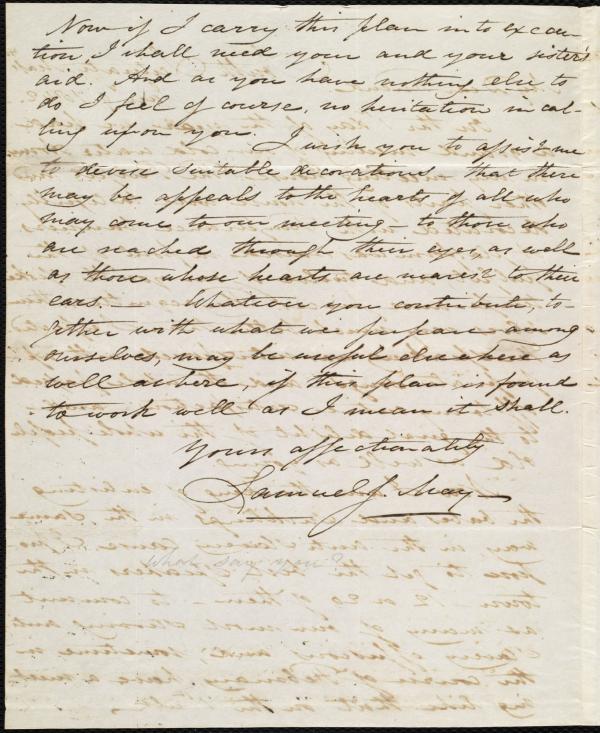 Now if I carry this plan into execu-
tion, I shall need your and your sister's
aid. And as you have nothing else to
do I feel of course, no hesitation in cal-
ling upon you. I wish you to assist me
to devise suitable decorations that there
may be appeals to the hearts of all who
may come to our meeting – to those who
are reached through their eyes, as well
as those whose hearts are nearest to their
ears. — Whatever you contribute, to-
gether with what we prepare among
ourselves, may be useful elsewhere as
well as here, if this plan is found
to work well as I mean it shall.
Yours affectionately
Samuel J. May —
What say you?